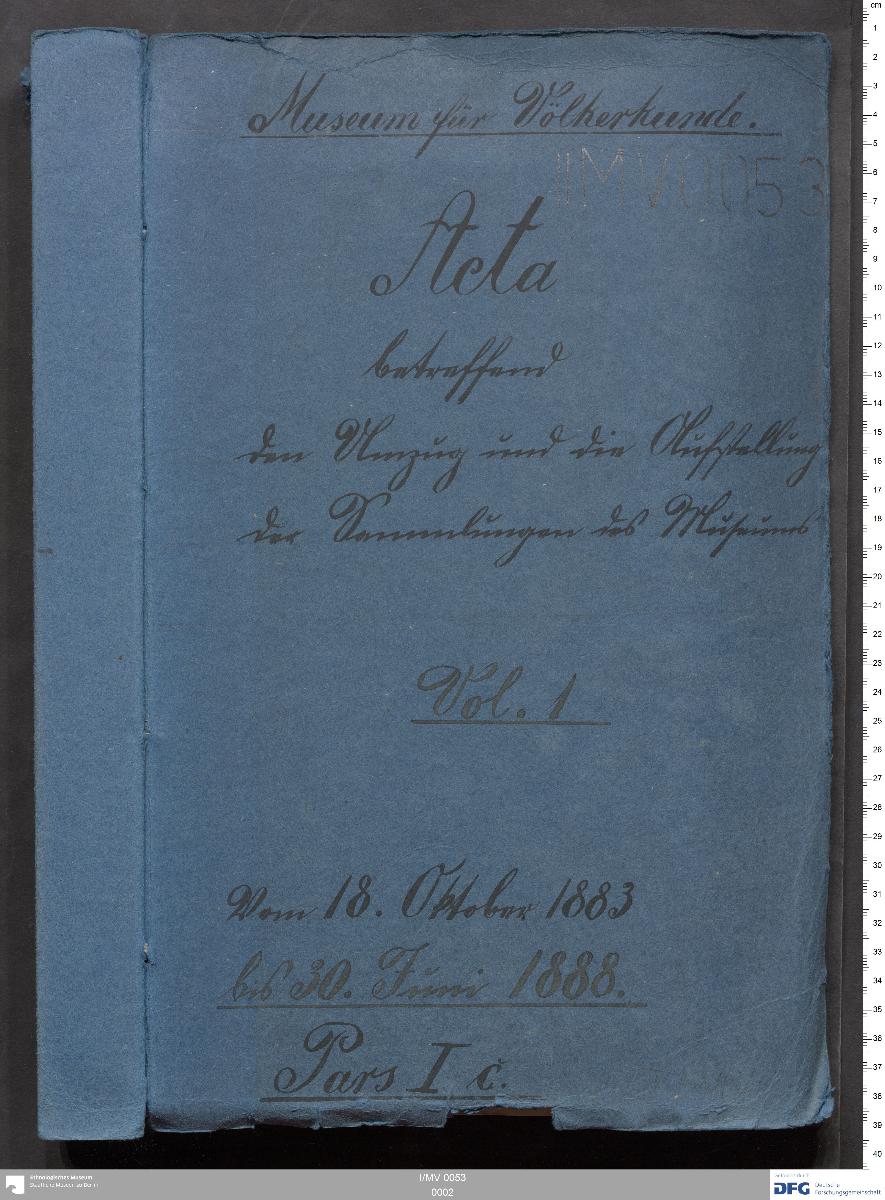 Museum für Völkerkunde.
I/MV 0053
Acta
betreffend
den Umzug und die Aufstellung
der Sammlungen des Museums
Vol. 1
Vom 18. Oktober 1883
bis 30. Juni 1888.
Pars I c.
cm
1
2
3
4
5
6
7
8
9
10
11
12
13
14
15
16
17
18
19
20
21
22
23
24
25
26
27
28
29
30
31
32
33
34
35
36
37
38
39
40
Ethnologisches Museum
Staatliche Museen zu Berlin
I/MV 0053
0002
Gefördert durch
DFG Deutsche
Forschungsgemeinschaft